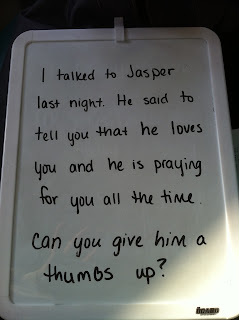 I talked to Jasper
last night. He said to
tell you that he loves
you and he is praying
for you all the time.
Can you give him a
thumbs up?
THE BOARD